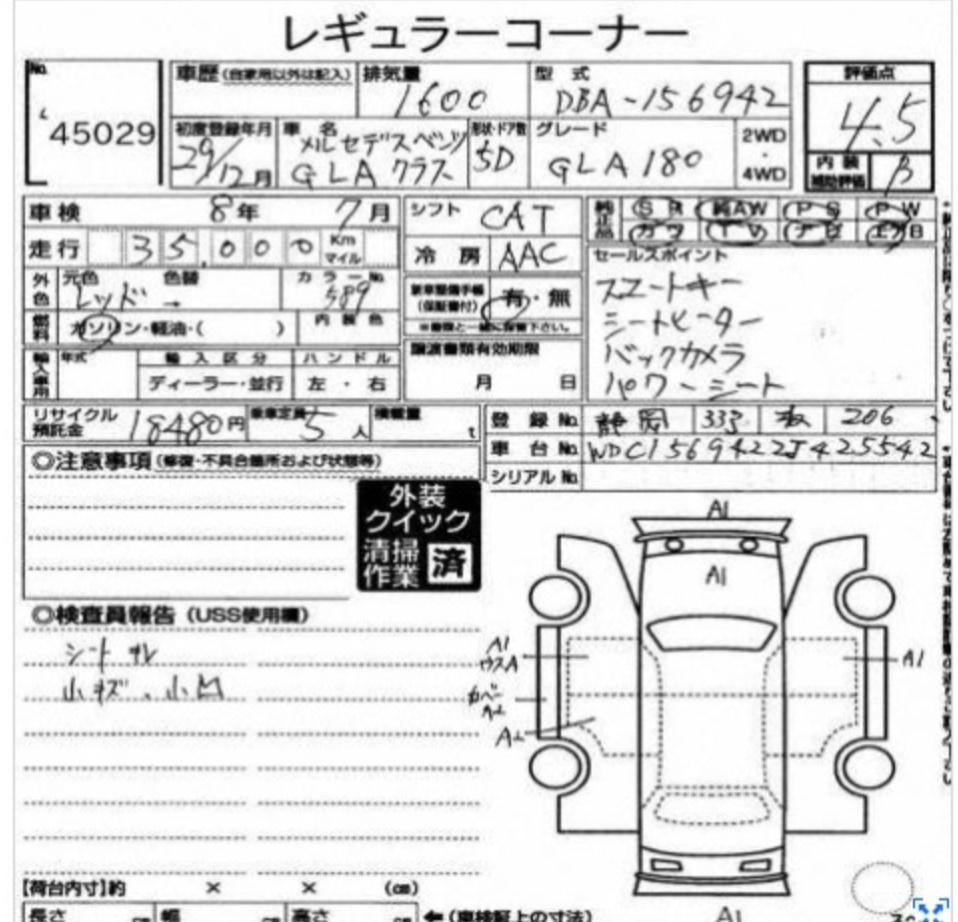 レギュラーコーナー
No.
45029
車歴 (自家用以外は記入)
排気量
1600
型式
DBA-156942
評価点
4.5
初度登録年月
29/12月
車名
メルセデスベンツ
GLA クラス
形状・ドア数
5D
グレード
GLA 180
2WD
・
4WD
内装
補助評価
B
車検 8年 7月
シフト CAT
純正品
SR 純AW PS PW
カワ TV ナビ エアB
走行 35,000 Km マイル
冷房 AAC
セールスポイント
スマートキー
シートヒーター
バックカメラ
パワーシート
外色 元色 色替 カラーNo.
レッド → 589
新車整備手帳
(保証書付)
有・無
※書類と一緒に保管下さい。
燃料 ガソリン・軽油・( )
内装色
輸入車用 年式 輸入区分 ハンドル
ディーラー・並行 左・右
譲渡書類有効期限
月 日
リサイクル
預託金 18480円
乗車定員 5人
積載量 t
登録No. 静岡 333 206
車台No. WDC1569422J425542
シリアルNo.
◎注意事項 (修復・不具合箇所および状態等)
外装
クイック
清掃
作業
済
◎検査員報告 (USS使用欄)
シートキレ
小キズ、小凹
A1
A1
A1
ウスA
A1
A1
【荷台内寸】約 × × (cm)
長さ cm 幅 cm 高さ cm ←(車検証上の寸法)